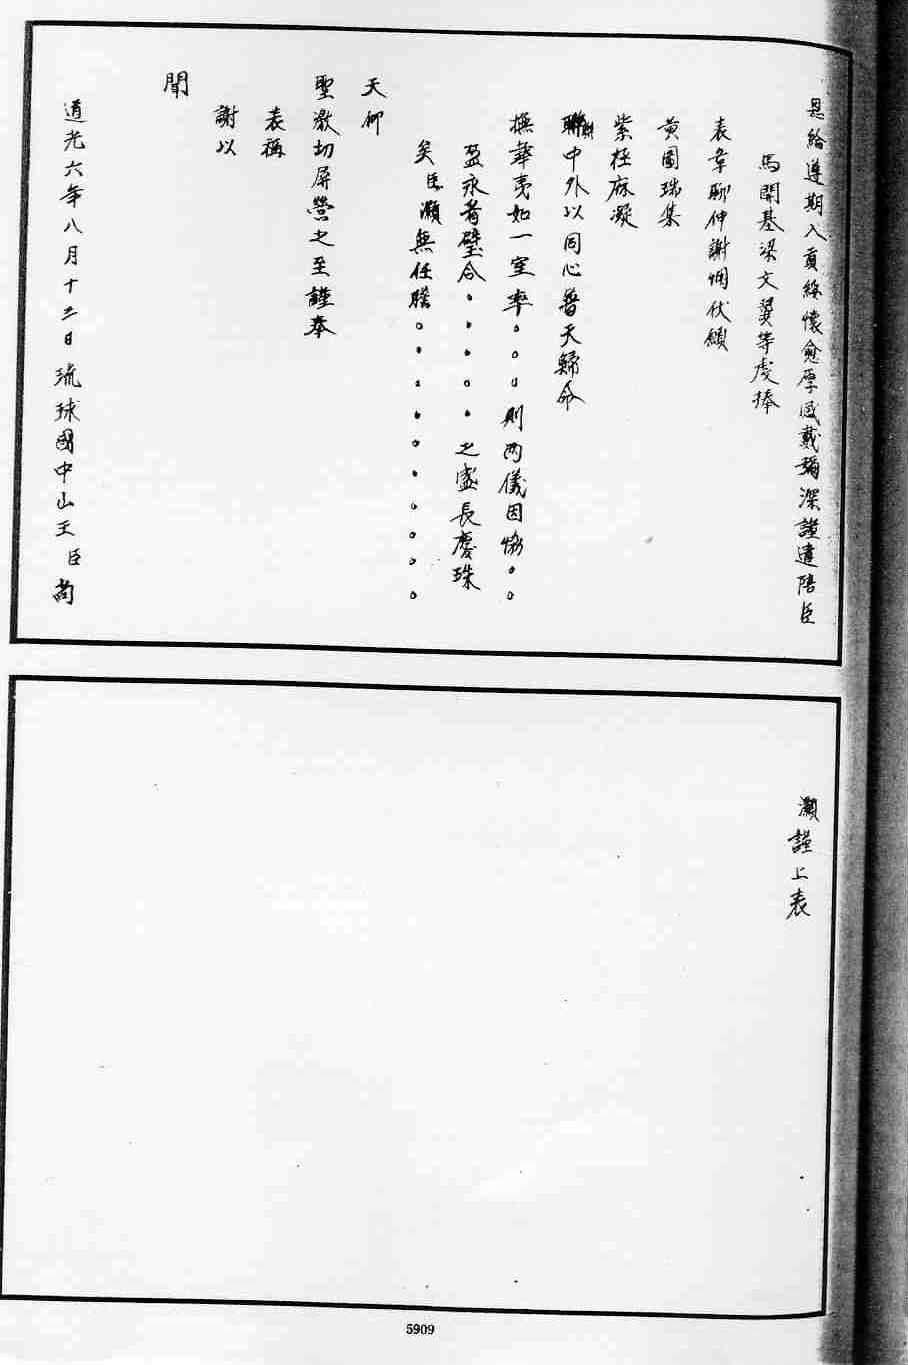 恩給遵期入貢綏懷愈厚感戴彌深謹遣陪臣
馬開基梁文翼等虔捧
表章聊伸謝悃伏願
黃圖瑞集
紫極庥凝
聯中外以同心普天歸命
撫華夷如一室率。。。則兩儀因愶。。
盈永著璧合。。。。。之盛長慶珠
矣臣灝無任瞻。。。。。。。。。。
天仰
聖激切屏營之至謹奉
表稱
謝以
聞
道光六年八月十三日琉球國中山王臣尚
灝謹上表
5909